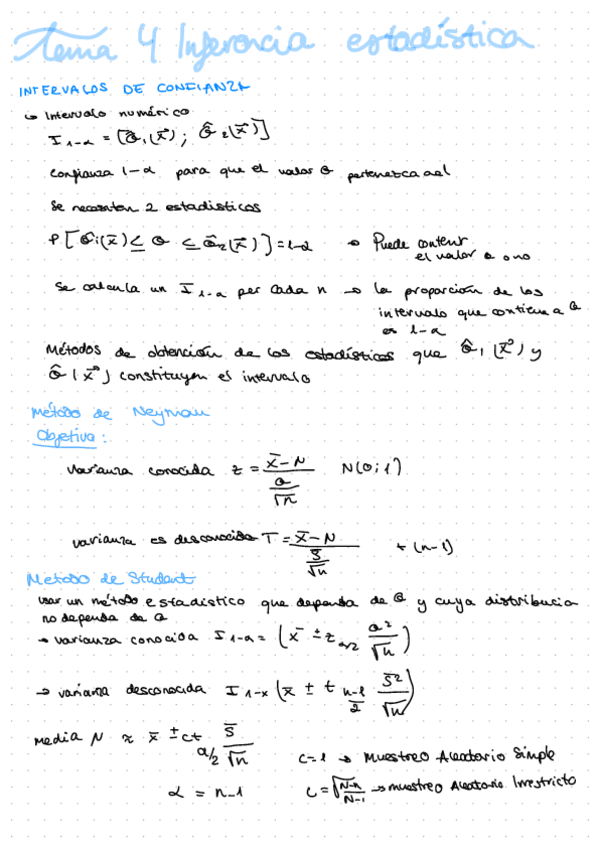 Tema 4 Inferencia estadística
INTERVALOS DE CONFIANZA
↳ Intervalo numérico
I 1-α = [θ̂₁(x⃗); θ̂₂(x⃗)]
Confianza 1-α para que el valor θ pertenezca a el
Se necesitan 2 estadísticos
P[θ̂₁(x⃗) ≤ θ ≤ θ̂₂(x⃗)] = 1-α → Puede contener
el valor θ o no
Se calcula un I 1-α per cada n → la proporción de los
intervalo que contiene a θ
es 1-α
Métodos de obtención de los estadísticos que θ̂₁(x⃗) y
θ̂(x⃗) constituyen el intervalo
Método de Neyman
Objetivo:
varianza conocida z = (x̄-N)/(σ/√n) N(0;1)
varianza es desconocida T = (x̄-N)/(S̄/√n) t(n-1)
Metodo de Student
usar un método estadístico que dependa de θ y cuya distribucia
no dependa de θ
→ varianza conocida I 1-α = (x̄ ± z α/2 σ²/√n)
→ varianza desconocida I 1-x (x̄ ± t n-1/2 S̄²/√n)
media N ≈ x̄ ± ct α/2 S̄/√n
C=1 → Muestreo Aleatorio Simple
α = n-1
C=√(N-n/N-1) → muestreo Aleatorio Irrestricto